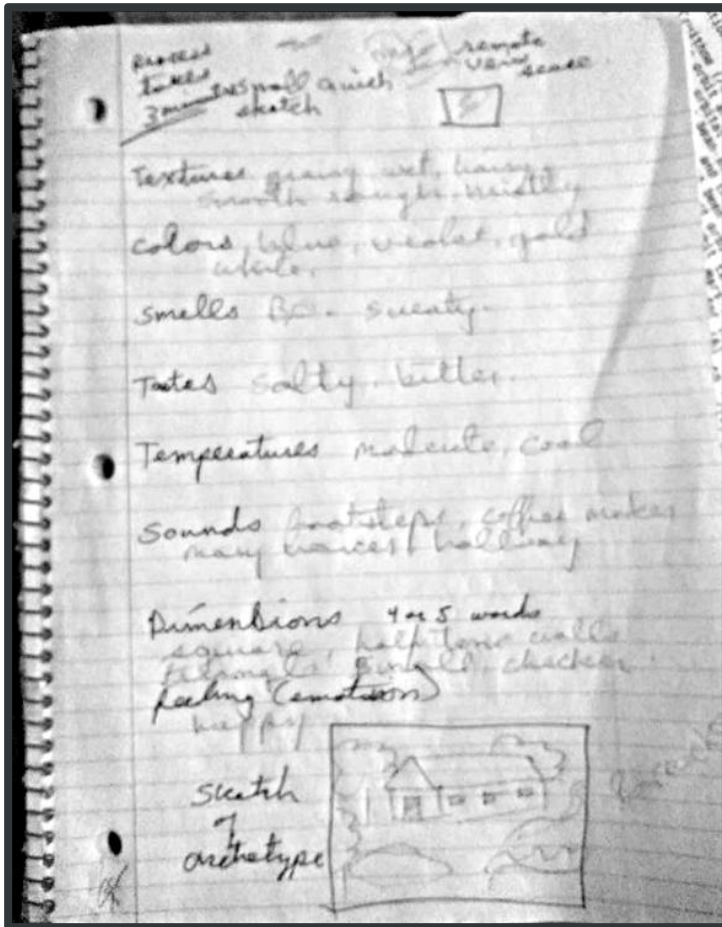 process
takes
3 minutes small quick
sketch
remote
view
sense
Textures grainy wet, hairy,
smooth rough, mistly
colors, blue, violet, gold
white.
smells B.O. sweaty.
Tastes salty, bitter.
Temperatures moderate, cool
Sounds footsteps, coffee maker
many voices, hallway
Dimensions 4 or 5 words
square, walls
triangle,
feeling (emotion)
happy
Sketch
of
archetype